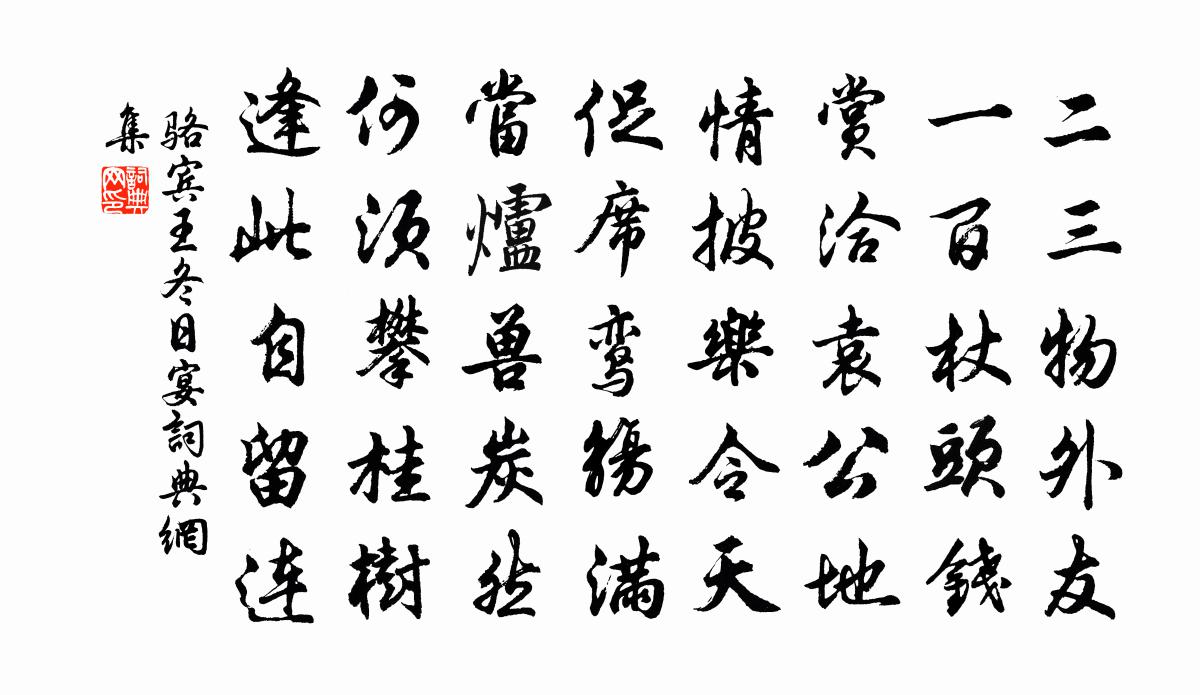 二三物外友
一百杖頭錢
賞洽袁公地
情披樂令天
促席鸾觴滿
當爐兽炭然
何須攀桂樹
逢此自留連
骆宾王冬日宴詞典網
集
詞典网印